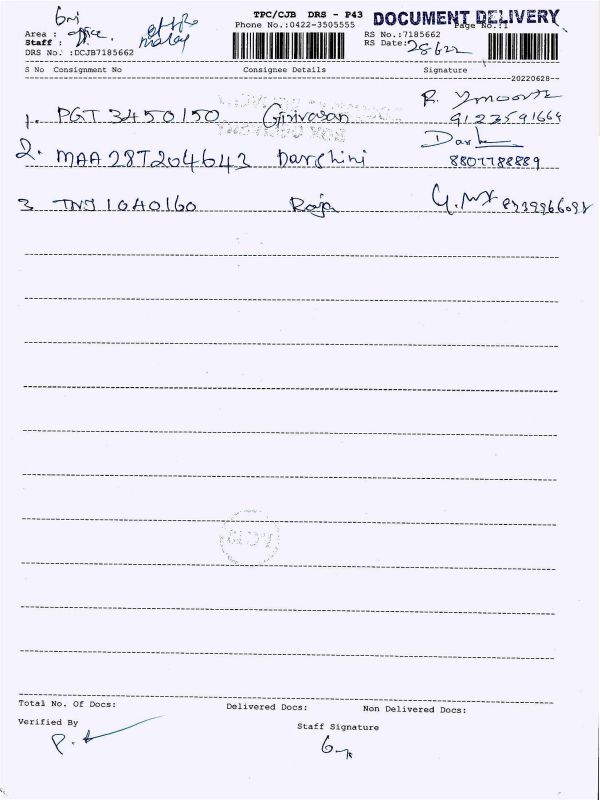 TPC/CJB DRS - P43 DOCUMENT DELIVERY
Area : office.
Phone No.:0422-3505555 RS No.:7185662 Page No.:1
Staff :
RS Date: 28622
DRS No. :DCJB7185662
S No Consignment No Consignee Details Signature
20220628
1. PGT 3450150 Girivasan
9123591664
2. MAA 28T204643 Darshini
8807788889
3 TNJ 1040160 Raja
Total No. Of Docs: Delivered Docs: Non Delivered Docs:
Verified By Staff Signature